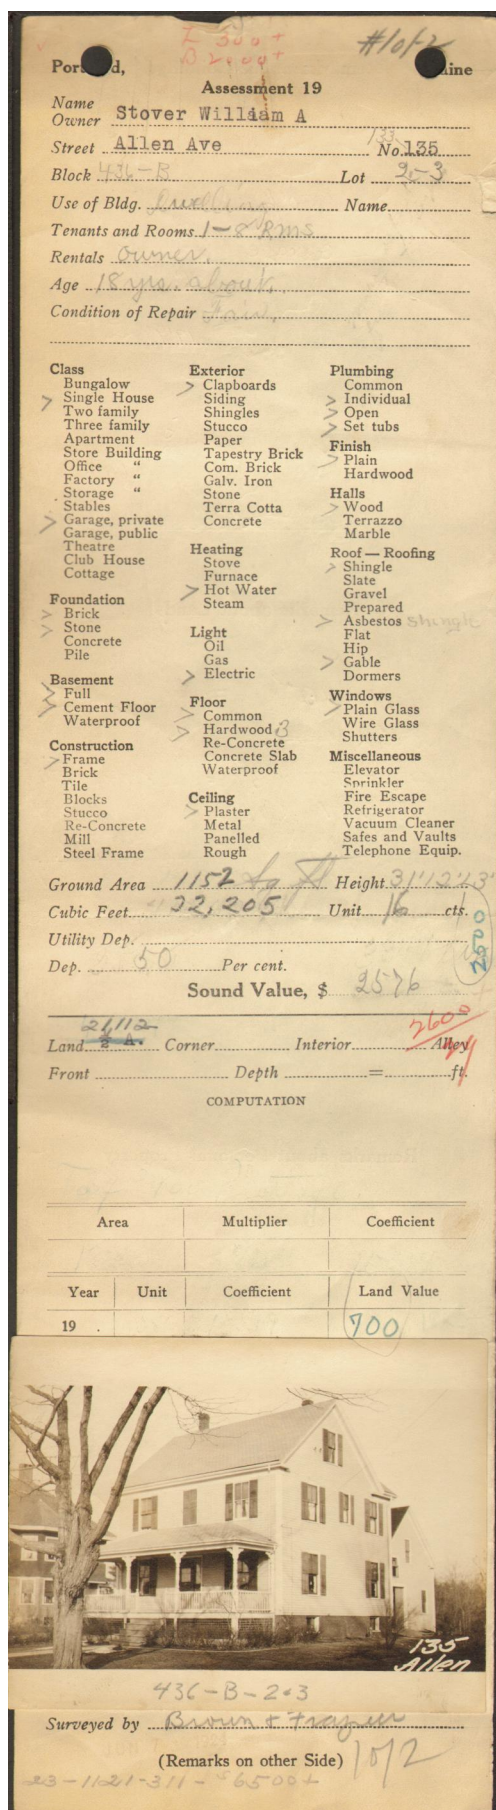 L 300+
B 2000+
#1 of 2
Portland, Maine
Assessment 19
Name
Owner Stover William A
Street Allen Ave No. 135
133
Block 436-B Lot 2-3
Use of Bldg. Dwelling Name
Tenants and Rooms 1-8 Rms
Rentals owner.
Age 18 yrs. about.
Condition of Repair Fair.
Class
Bungalow
> Single House
Two family
Three family
Apartment
Store Building
Office "
Factory "
Storage "
Stables
> Garage, private
Garage, public
Theatre
Club House
Cottage
Foundation
> Brick
> Stone
Concrete
Pile
Basement
> Full
> Cement Floor
Waterproof
Construction
> Frame
Brick
Tile
Blocks
Stucco
Re-Concrete
Mill
Steel Frame
Exterior
> Clapboards
Siding
Shingles
Stucco
Paper
Tapestry Brick
Com. Brick
Galv. Iron
Stone
Terra Cotta
Concrete
Heating
Stove
Furnace
> Hot Water
Steam
Light
Oil
Gas
> Electric
Floor
> Common
> Hardwood 3
Re-Concrete
Concrete Slab
Waterproof
Ceiling
> Plaster
Metal
Panelled
Rough
Plumbing
Common
> Individual
> Open
> Set tubs
Finish
> Plain
Hardwood
Halls
> Wood
Terrazzo
Marble
Roof — Roofing
> Shingle
Slate
Gravel
Prepared
> Asbestos Shingle
Flat
Hip
> Gable
Dormers
Windows
> Plain Glass
Wire Glass
Shutters
Miscellaneous
Elevator
Sprinkler
Fire Escape
Refrigerator
Vacuum Cleaner
Safes and Vaults
Telephone Equip.
Ground Area 1152 sq ft Height 31'12'13'
Cubic Feet 32,205 Unit 16 cts.
Utility Dep.
2500
Dep. 50 Per cent.
Sound Value, $ 2576
2600
21,112
Land ½ A. Corner Interior Alley
Front Depth = ft.
COMPUTATION
Area Multiplier Coefficient
Year Unit Coefficient Land Value
19 . 700
135
Allen
436-B-2-3
Surveyed by Brown & Frazier
(Remarks on other Side) 1 of 2
23-1121-311- 6500+